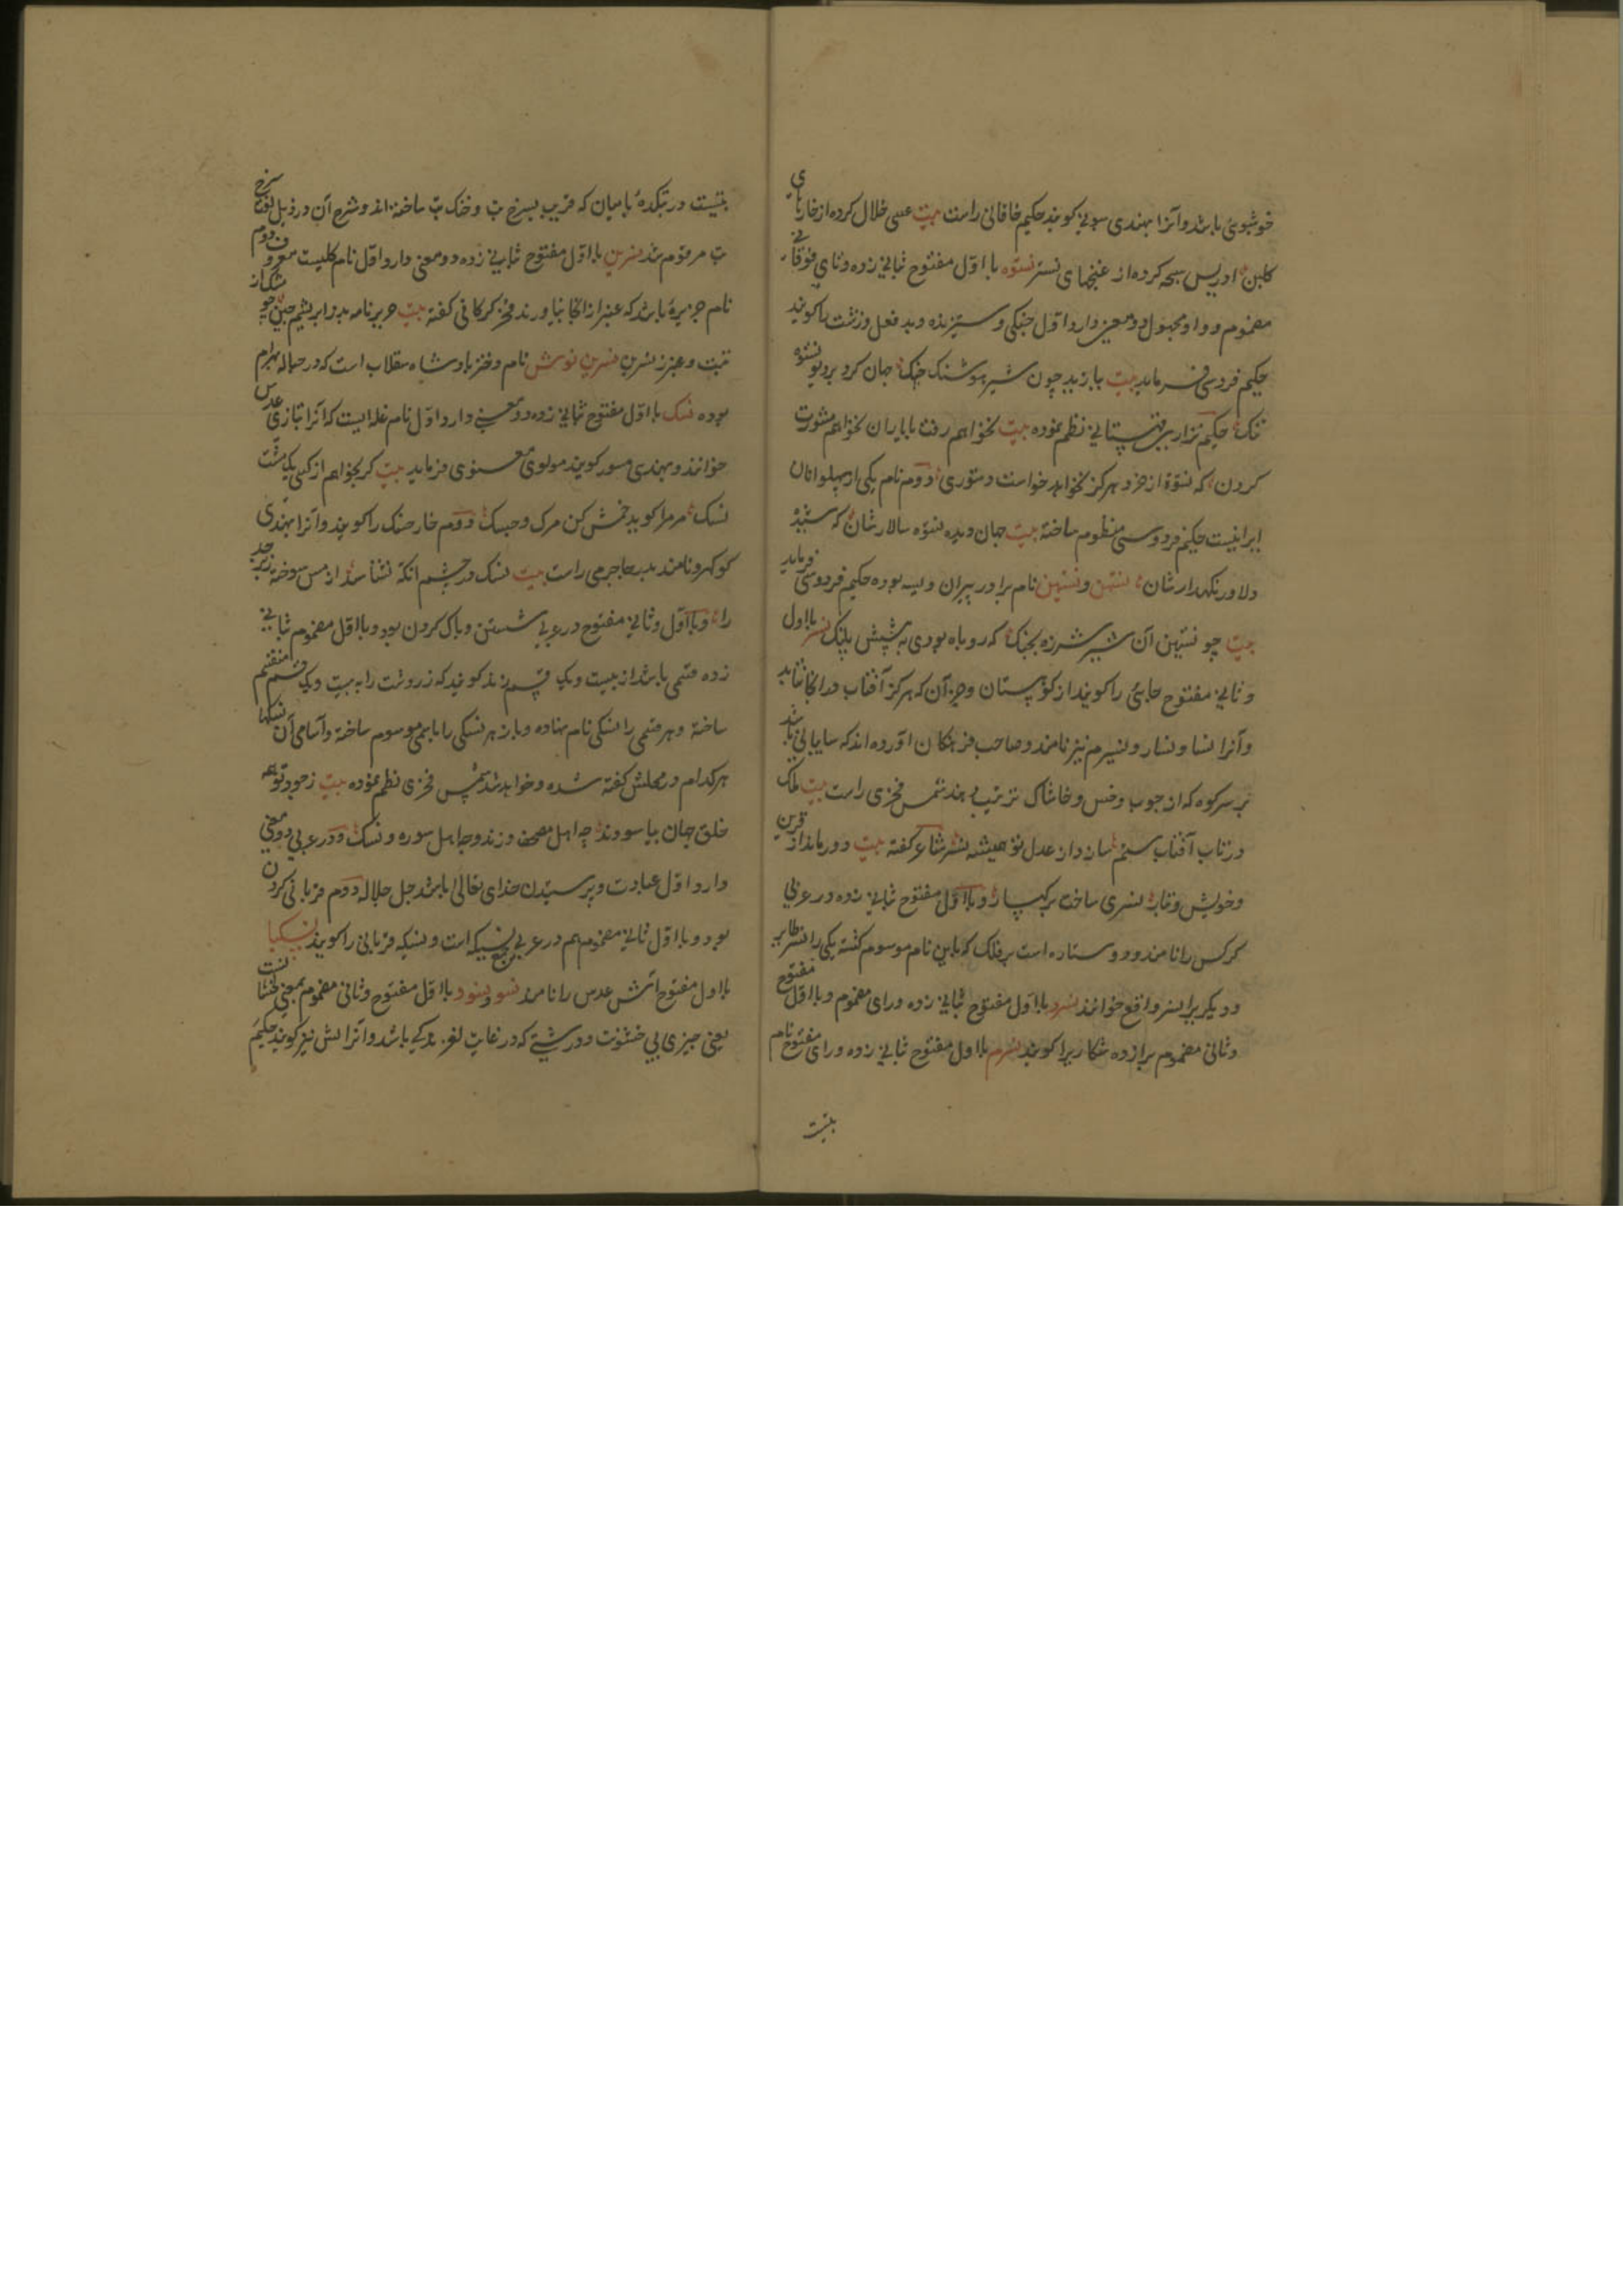 خوشبوی باشد و آنرا بهندی سوپلی کویند حکیم خاقانی راست بیت عیسی خلال کرده از خارهای
کلبن ادریس سبحه کرده از غنچهای نستر نستوه با اول مفتوح ثبانی زده و تای فوقانی
مضموم و واو مجهول دو معنی دارد اول جنکی و ستیزنده و بد فعل و زشت را کویند
حکیم فردوسی فرماید بیت بیازید چون شیر هوشنک چنک جهان کرد بر دیو نستوه
تنک حکیم نزاری قهستانی نظم نموده بیت نخواهم رفت با یاران نخواهم مشورت
کردن که نستوه از خرد هرکز نخواهد خواست دستوری دوم نام یکی از پهلوانان
ایرانیست حکیم فردوسی منظوم ساخته بیت جهان دیده نستوه سالارشان که ستبد
دلاور نکهدارشان نستهن و نستیهن نام برادر پیران ویسه بوده حکیم فردوسی فرماید
بیت چو نستیهن آن شیر شرزه بجنک که روباه بودی به پیشش پلنک نسر با اول
و ثانی مفتوح جایی را کویند از کوهستان و جز آن که هرکز آفتاب در انجا نتابد
و آنرا نسا و نسار و نسیرم نیز نامند و صاحب فرهنکان آورده اند که سایبانی باشد
بر سر کوه که از چوب و خس و خاشاک ترتیب دهند شمس فخری راست بیت ملک
در تاب آفتاب ستم سازد از عدل تو همیشه نسر شاعر کفته بیت دور ماند از قرین
و خویش و تبار نسری ساخت بر کهسار و با اول مفتوح ثبانی زده در عربی
کرکس را نامند و دو ستاره است بر فلک که باین نام موسوم کشته یکی را نسر طایر
و دیکریرا نسر واقع خوانند نسرد با اول مفتوح ثبانی زده و رای مضموم و با اول مفتوح
و ثانی مضموم برازده شکاریرا کویند نسرم با اول مفتوح ثبانی زده و رای مفتوح نام
بتیست
بتیست در بتکدهٔ بامیان که قریب بسرخ بت و خنک بت ساخته اند و شرح آن در ذیل لغت سرخ
بت مرقوم شد نسرین با اول مفتوح ثبانی زده دو معنی دارد اول نام کلیست معروف دوم
نام جزیرهٔ باشد که عنبر از انجا بیاورند فخر کرکانی کفته بیت حریر نامه بد ز ابریشم چین چو مشک از
تبت و عنبر ز نسرین نسرین نوش نام دختر پادشاه سقلاب است که در حباله بهرام
بوده نسک با اول مفتوح ثبانی زده دو معنی دارد اول نام غله ایست که آنرا بتازی عدس
خوانند و بهندی مسور کویند مولوی معنوی فرماید بیت کر بخواهم از کسی یک مشت
نسک مر مرا کوید خمش کن مرک و جسک دوم خار خسک را کویند و آنرا بهندی
کوکهرو نامند بدر جاجرمی راست بیت نسک در چشم انکه نشناسد از مس سوخته زبرجد
را و با اول و ثانی مفتوح در عربی شستن و پاک کردن بود و با اول مضموم ثبانی
زده قسمی باشد از بیست و یک قسم زند کویند که زردشت زند را به بیست و یک قسم منقسم
ساخته و هر قسمی را نسکی نام نهاده و باز هر نسکی را بنامی موسوم ساخته و اسامی آن نسکها
هر کدام در محلش کفته شده و خواهد شد شمس فخری نظم نموده بیت ز جود تو همه
خلق جهان بیاسودند چه اهل مصحف و زند و چه اهل سوره و نسک و در عربی دو معنی
دارد اول عبادت و پرستیدن خدای تعالی باشد جل جلاله دوم قربانی کردن
بود و با اول ثانی مضموم هم در عربی جمع نسیکه است و نسیکه قربانی را کویند نسکبا
با اول مفتوح آش عدس را نامند نسو و نسود با اول مفتوح و ثانی مضموم بمعنی لخشا است
یعنی چیزی بی خشونت و درشتی که در غایت لغزندکی باشد و آنرا لش نیز کویند حکیم